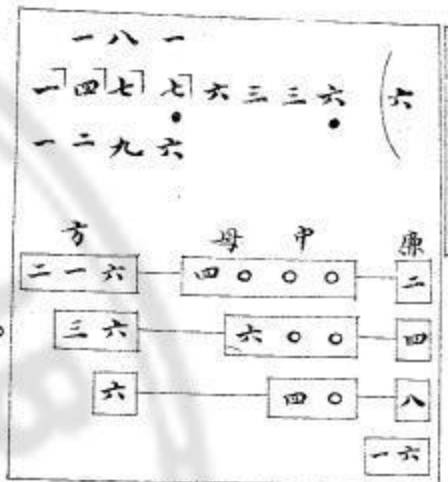 一八一
一四七七六三三六（六
一二九六
方 母 中 廉
二一六 四〇〇〇 二
三六 六〇〇 四
六 四〇 八
一六